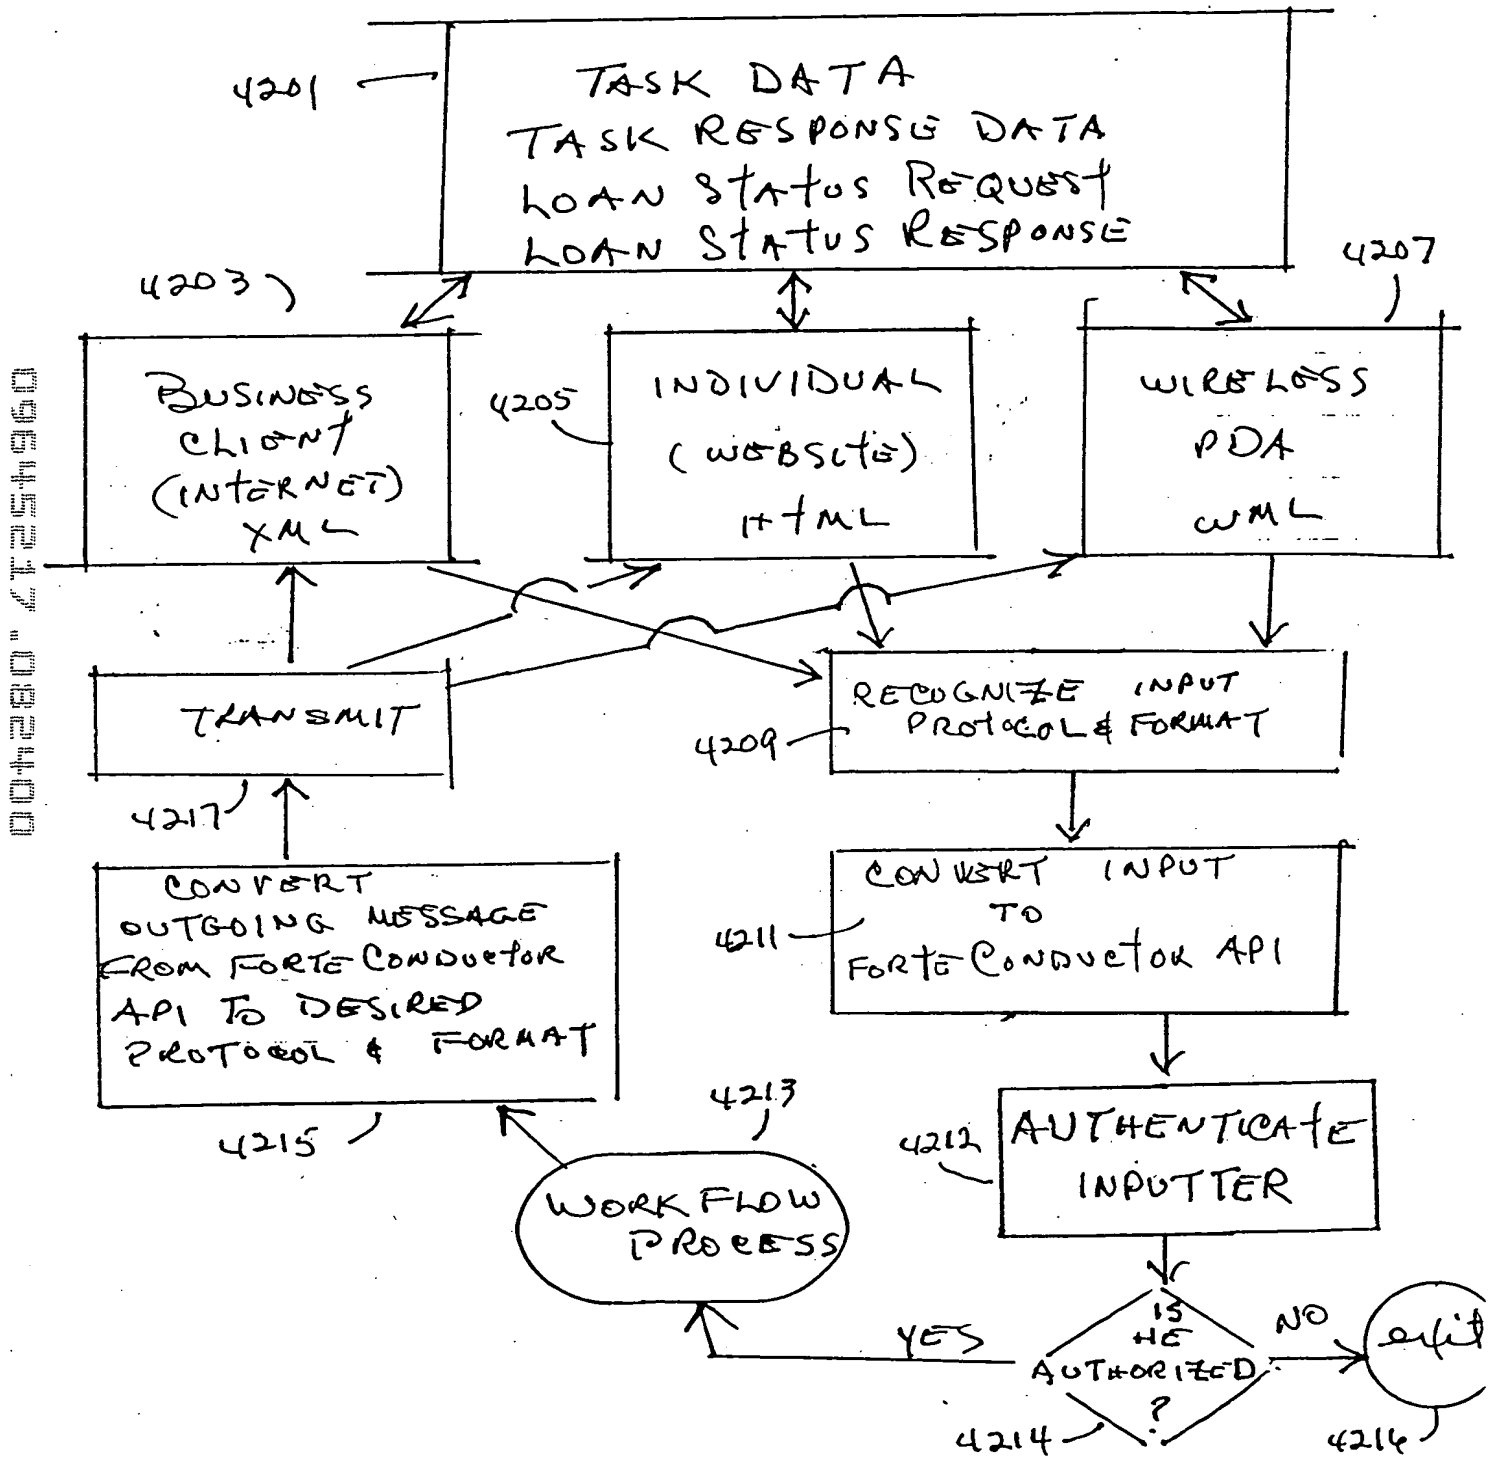 4201
TASK DATA
TASK RESPONSE DATA
LOAN STATUS REQUEST
LOAN STATUS RESPONSE
4203
4207
BUSINESS
CLIENT
(INTERNET)
XML
4205
INDIVIDUAL
(WEBSITE)
HTML
WIRELESS
PDA
WML
TRANSMIT
4217
RECOGNIZE INPUT
PROTOCOL & FORMAT
4209
CONVERT
OUTGOING MESSAGE
FROM FORTE CONDUCTOR
API TO DESIRED
PROTOCOL & FORMAT
4215
CONVERT INPUT
TO
FORTE CONDUCTOR API
4211
4213
WORK FLOW
PROCESS
4212
AUTHENTICATE
INPUTTER
IS
HE
AUTHORIZED
?
4214
YES
NO
exit
4216
09645217.042800